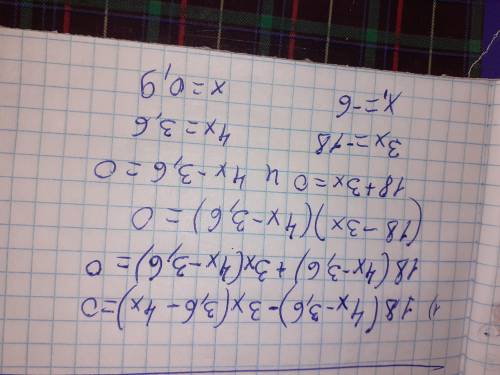 1) 18(4x-3,6)-3x(3,6-4x)=0
18(4x-3,6)+3x(4x-3,6)=0
(18-3x)(4x-3,6)=0
18+3x=0 и 4x-3,6=0
3x=-18 4x=3,6
x₁=-6 x=0,9